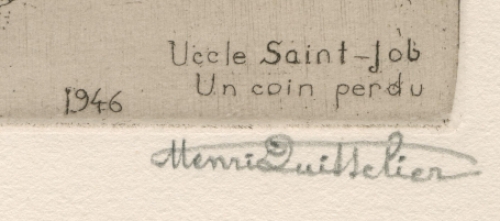 Uccle Saint-Job
Un coin perdu
1946
Henri Quittelier